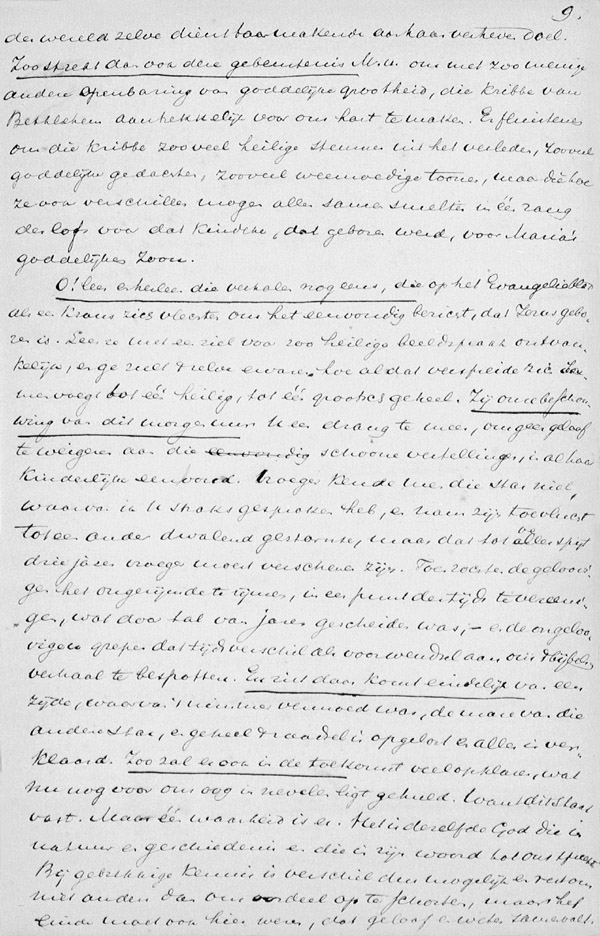 9.
der wereld zelve dienstbaar makende aan haar verheven doel.
Zoo strekt dan ook deze gebeurtenis M.H. om met zoo menig
andere openbaring van goddelijke grootheid, die kribbe van
Bethlehem aantrekkelijk voor ons hart te maken. Er fluisteren
om die kribbe zooveel heilige stemmen uit het verleden, zooveel
goddelijke gedachten, zooveel weemoedige toonen, maar die hoe
ze ook verschillen mogen allen samensmelten in één zang
des lofs voor dat kindeke, dat geboren werd, voor Maria's
goddelijken Zoon.
O! lees en herlees die verhalen nog eens, die op het Evangelieblad
als een krans zich vlechten om het eenvoudig bericht, dat Jezus gebo-
ren is. Lees ze met een ziel voor zoo heilige beeldspraak ontvan-
kelijk, en ge zult zelve ervaren, hoe al dat verspreide zich
samenvoegt tot één heilig, tot één grootsch geheel. Zij onze beschou-
wing van dit morgenuur U een drang te meer, om geen geloof
te weigeren aan die eenvoudig schoone vertellingen, in al haar
kinderlijke eenvoud. Vroeger kende men die star niet,
waarvan ik U straks gesproken heb, en nam zijn toevlucht
tot een ander dwalend gesternte, maar dat tot aller spijt
drie jaren vroeger moest verschenen zijn. Toen zochten de geloovi-
gen het ongerijmde te rijmen, in een punt des tijds te vereeni-
gen, wat door tal van jaren gescheiden was, – en de ongeloo-
vigen grepen dat tijdverschil als voorwendsel aan om 't bijbelsch
verhaal te bespotten. En ziet daar komt eindelijk van een
zijde, waarvan 't nimmer vermoed was, de mare van die
andere star, en geheel 't raadsel is opgelost en alles is ver-
klaard. Zoo zal er ook in de toekomst veel opklaren, wat
nu nog voor ons oog in nevelen ligt gehuld. Want dit staat
vast. Maar één waarheid is er. Het is dezelfde God die in
natuur en geschiedenis en die in zijn woord tot ons spreekt.
Bij gebrekkige kennis is verschil dus mogelijk en rest ons
niet anders dan om oordeel op te schorten, maar het
einde moet ook hier wezen, dat geloof en weten samenvalt.